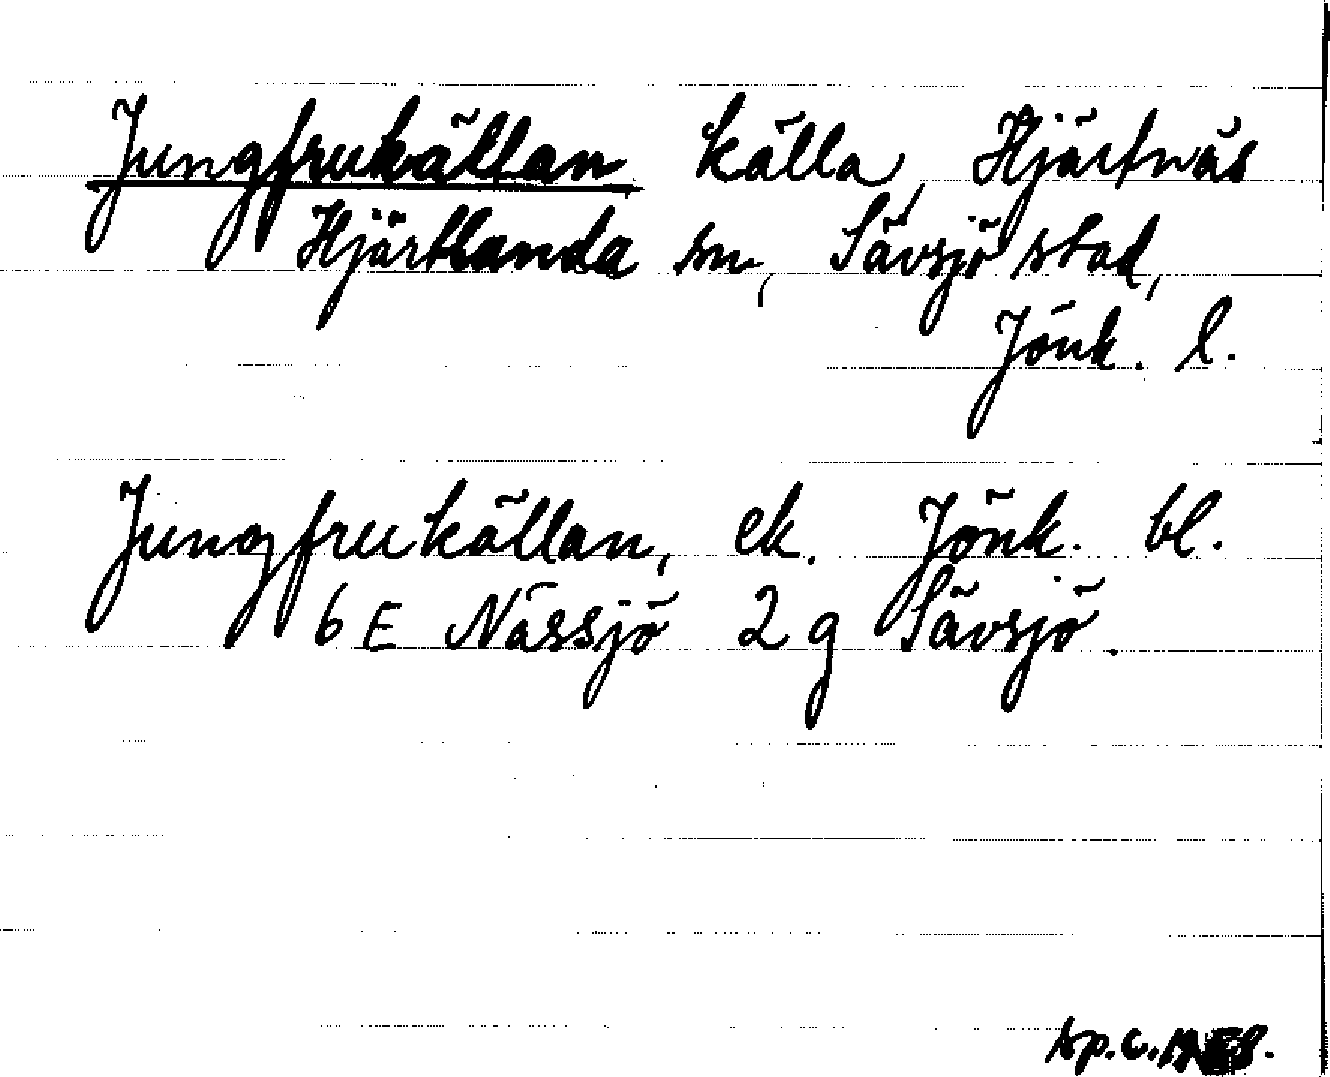 Jungfrukällan källa, Hjärtnäs
Hjärtlanda sn, Sävsjö stad,
Jönk. l.
Jungfrukällan, ek. Jönk. bl.
6 E Nässjö 2 g Sävsjö.